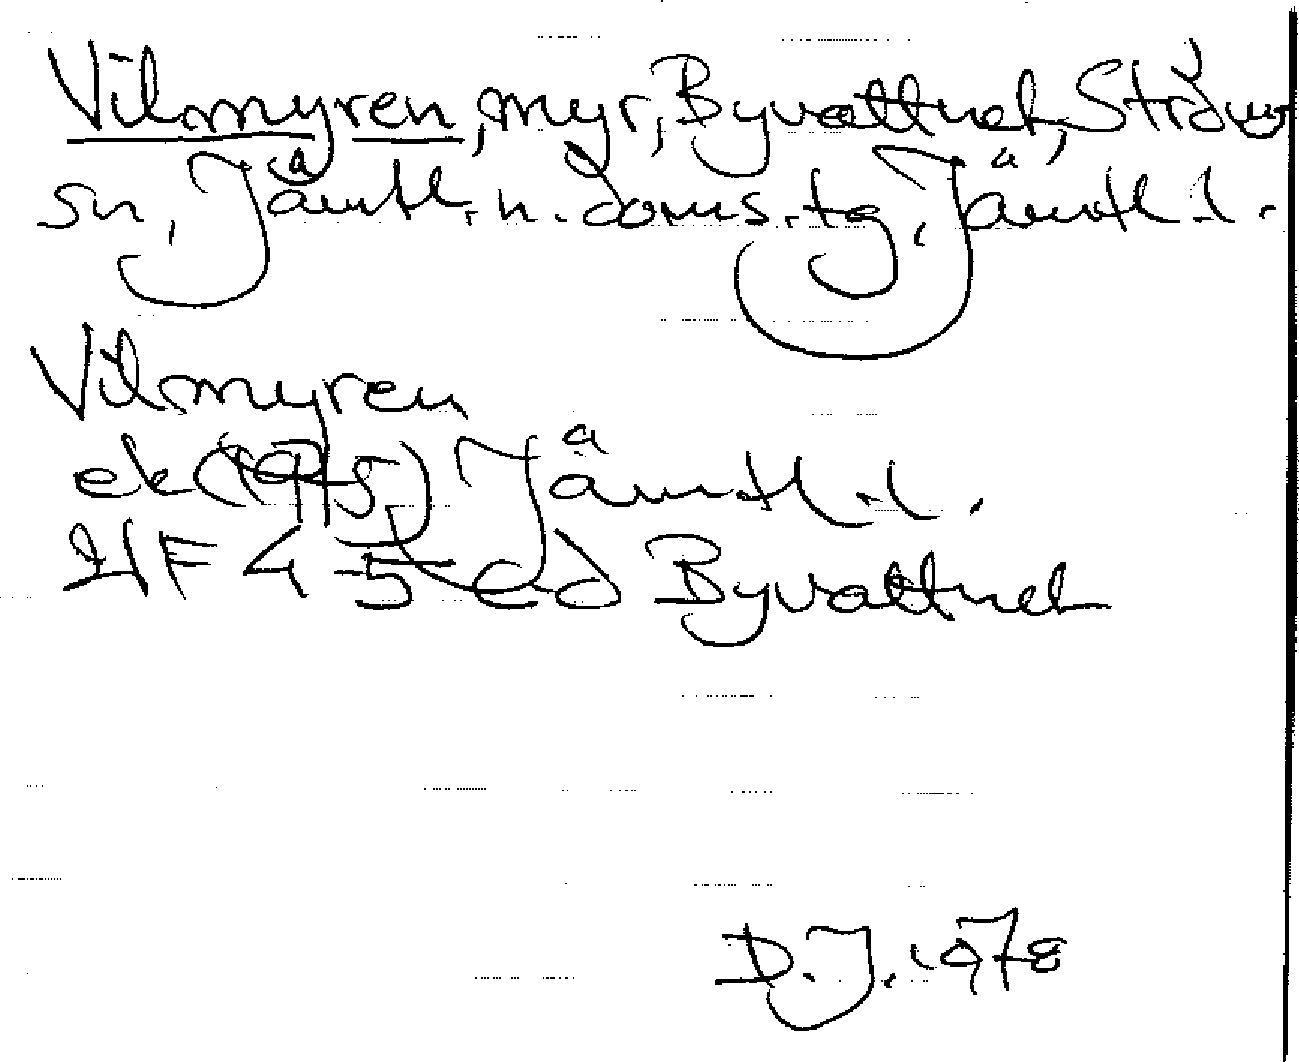 Vilmyren, myr, Byvattnet, Ströms
sn, Jämtl. n. doms. tg, Jämtl. l.
Vilmyren
ek (1915) Jämtl. l.
HF 4-5 cd Byvattnet
D. J. 1978